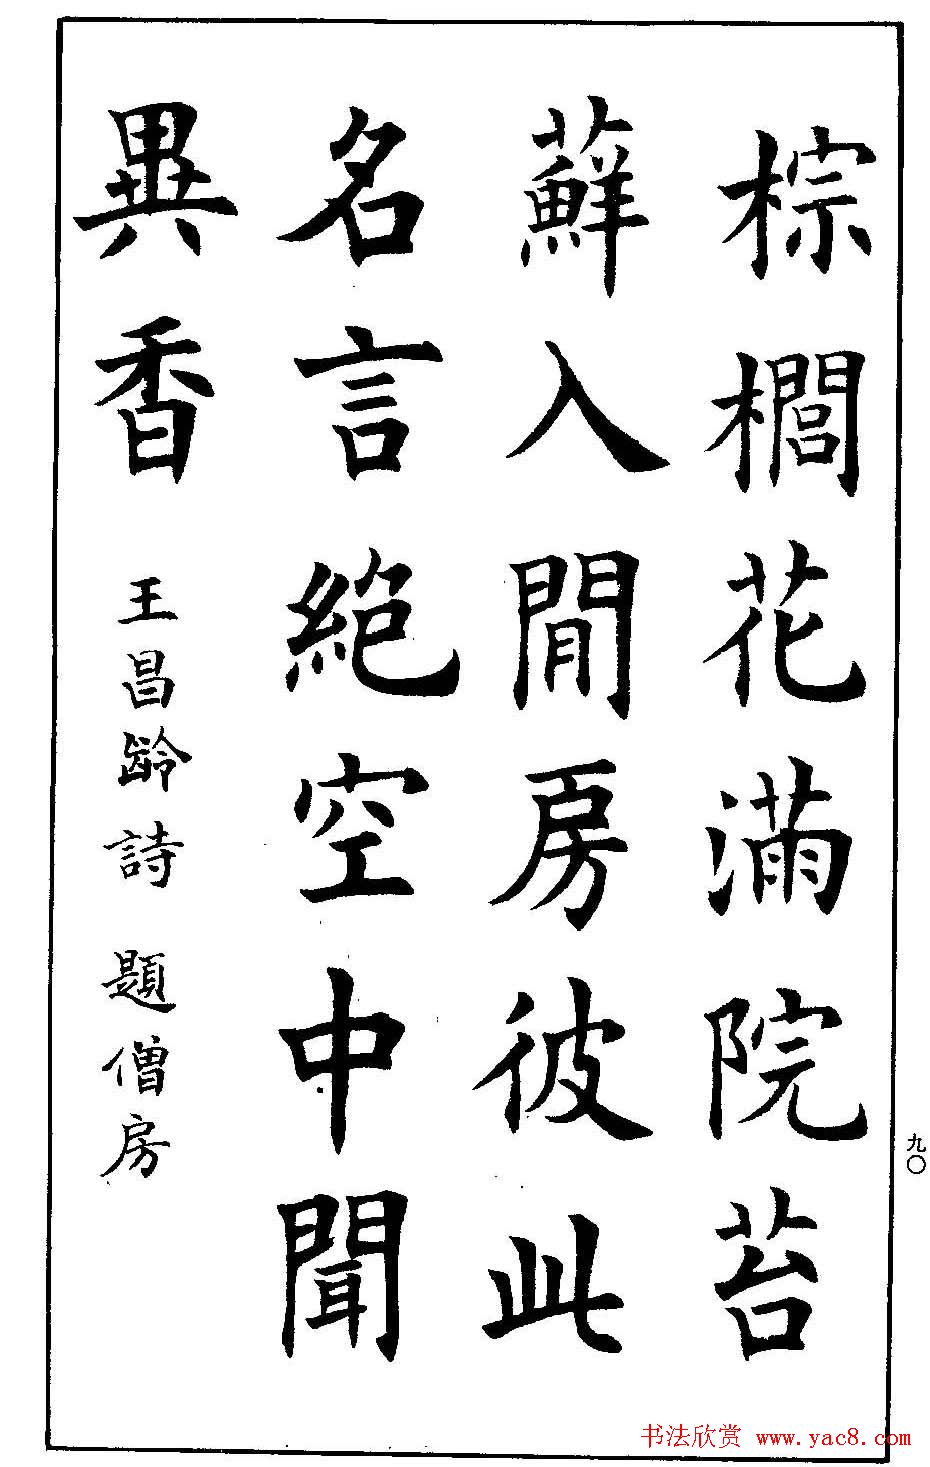 棕櫚花滿院苔
蘚入閒房彼此
名言絕空中聞
異香
王昌齡詩 題僧房
九〇
书法欣赏 www.yac8.com